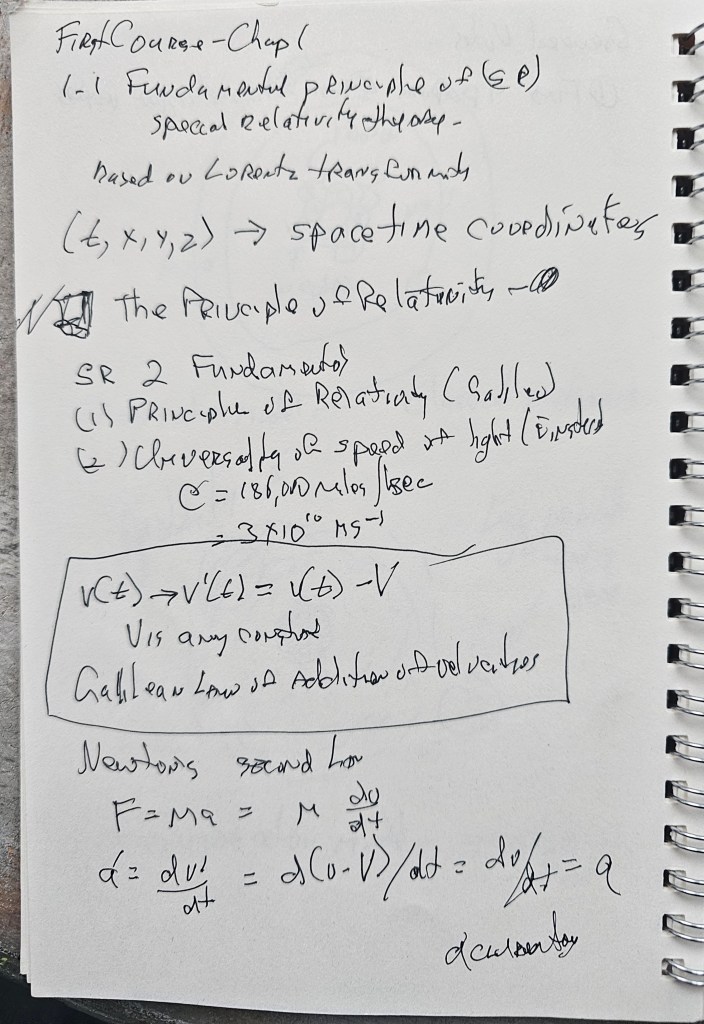 First Course - Chap 1
1-1 Fundamental principle of (SR)
special Relativity theory -
Based on Lorentz transforms
(t, x, y, z) → spacetime coordinates
The Principle of Relativity -
SR 2 Fundamentals
(1) Principle of Relativity (Galileo)
(2) Universality of speed of light (Einstein)
C = 186,000 miles/sec
= 3×10¹⁰ MS⁻¹
v(t) → v'(t) = v(t) - V
V is any constant
Galilean Law of Addition of velocities
Newton's second Law
F = Ma = M dv/dt
a' = dv'/dt = d(v-V)/dt = dv/dt = a